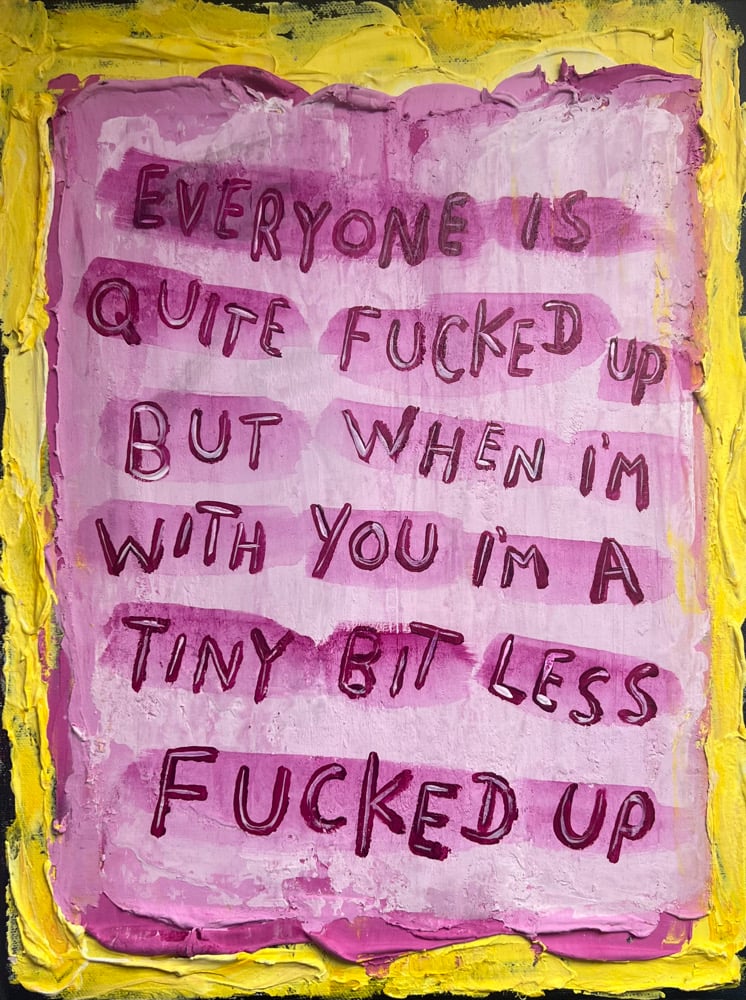 EVERYONE IS
QUITE FUCKED UP
BUT WHEN I'M
WITH YOU I'M A
TINY BIT LESS
FUCKED UP